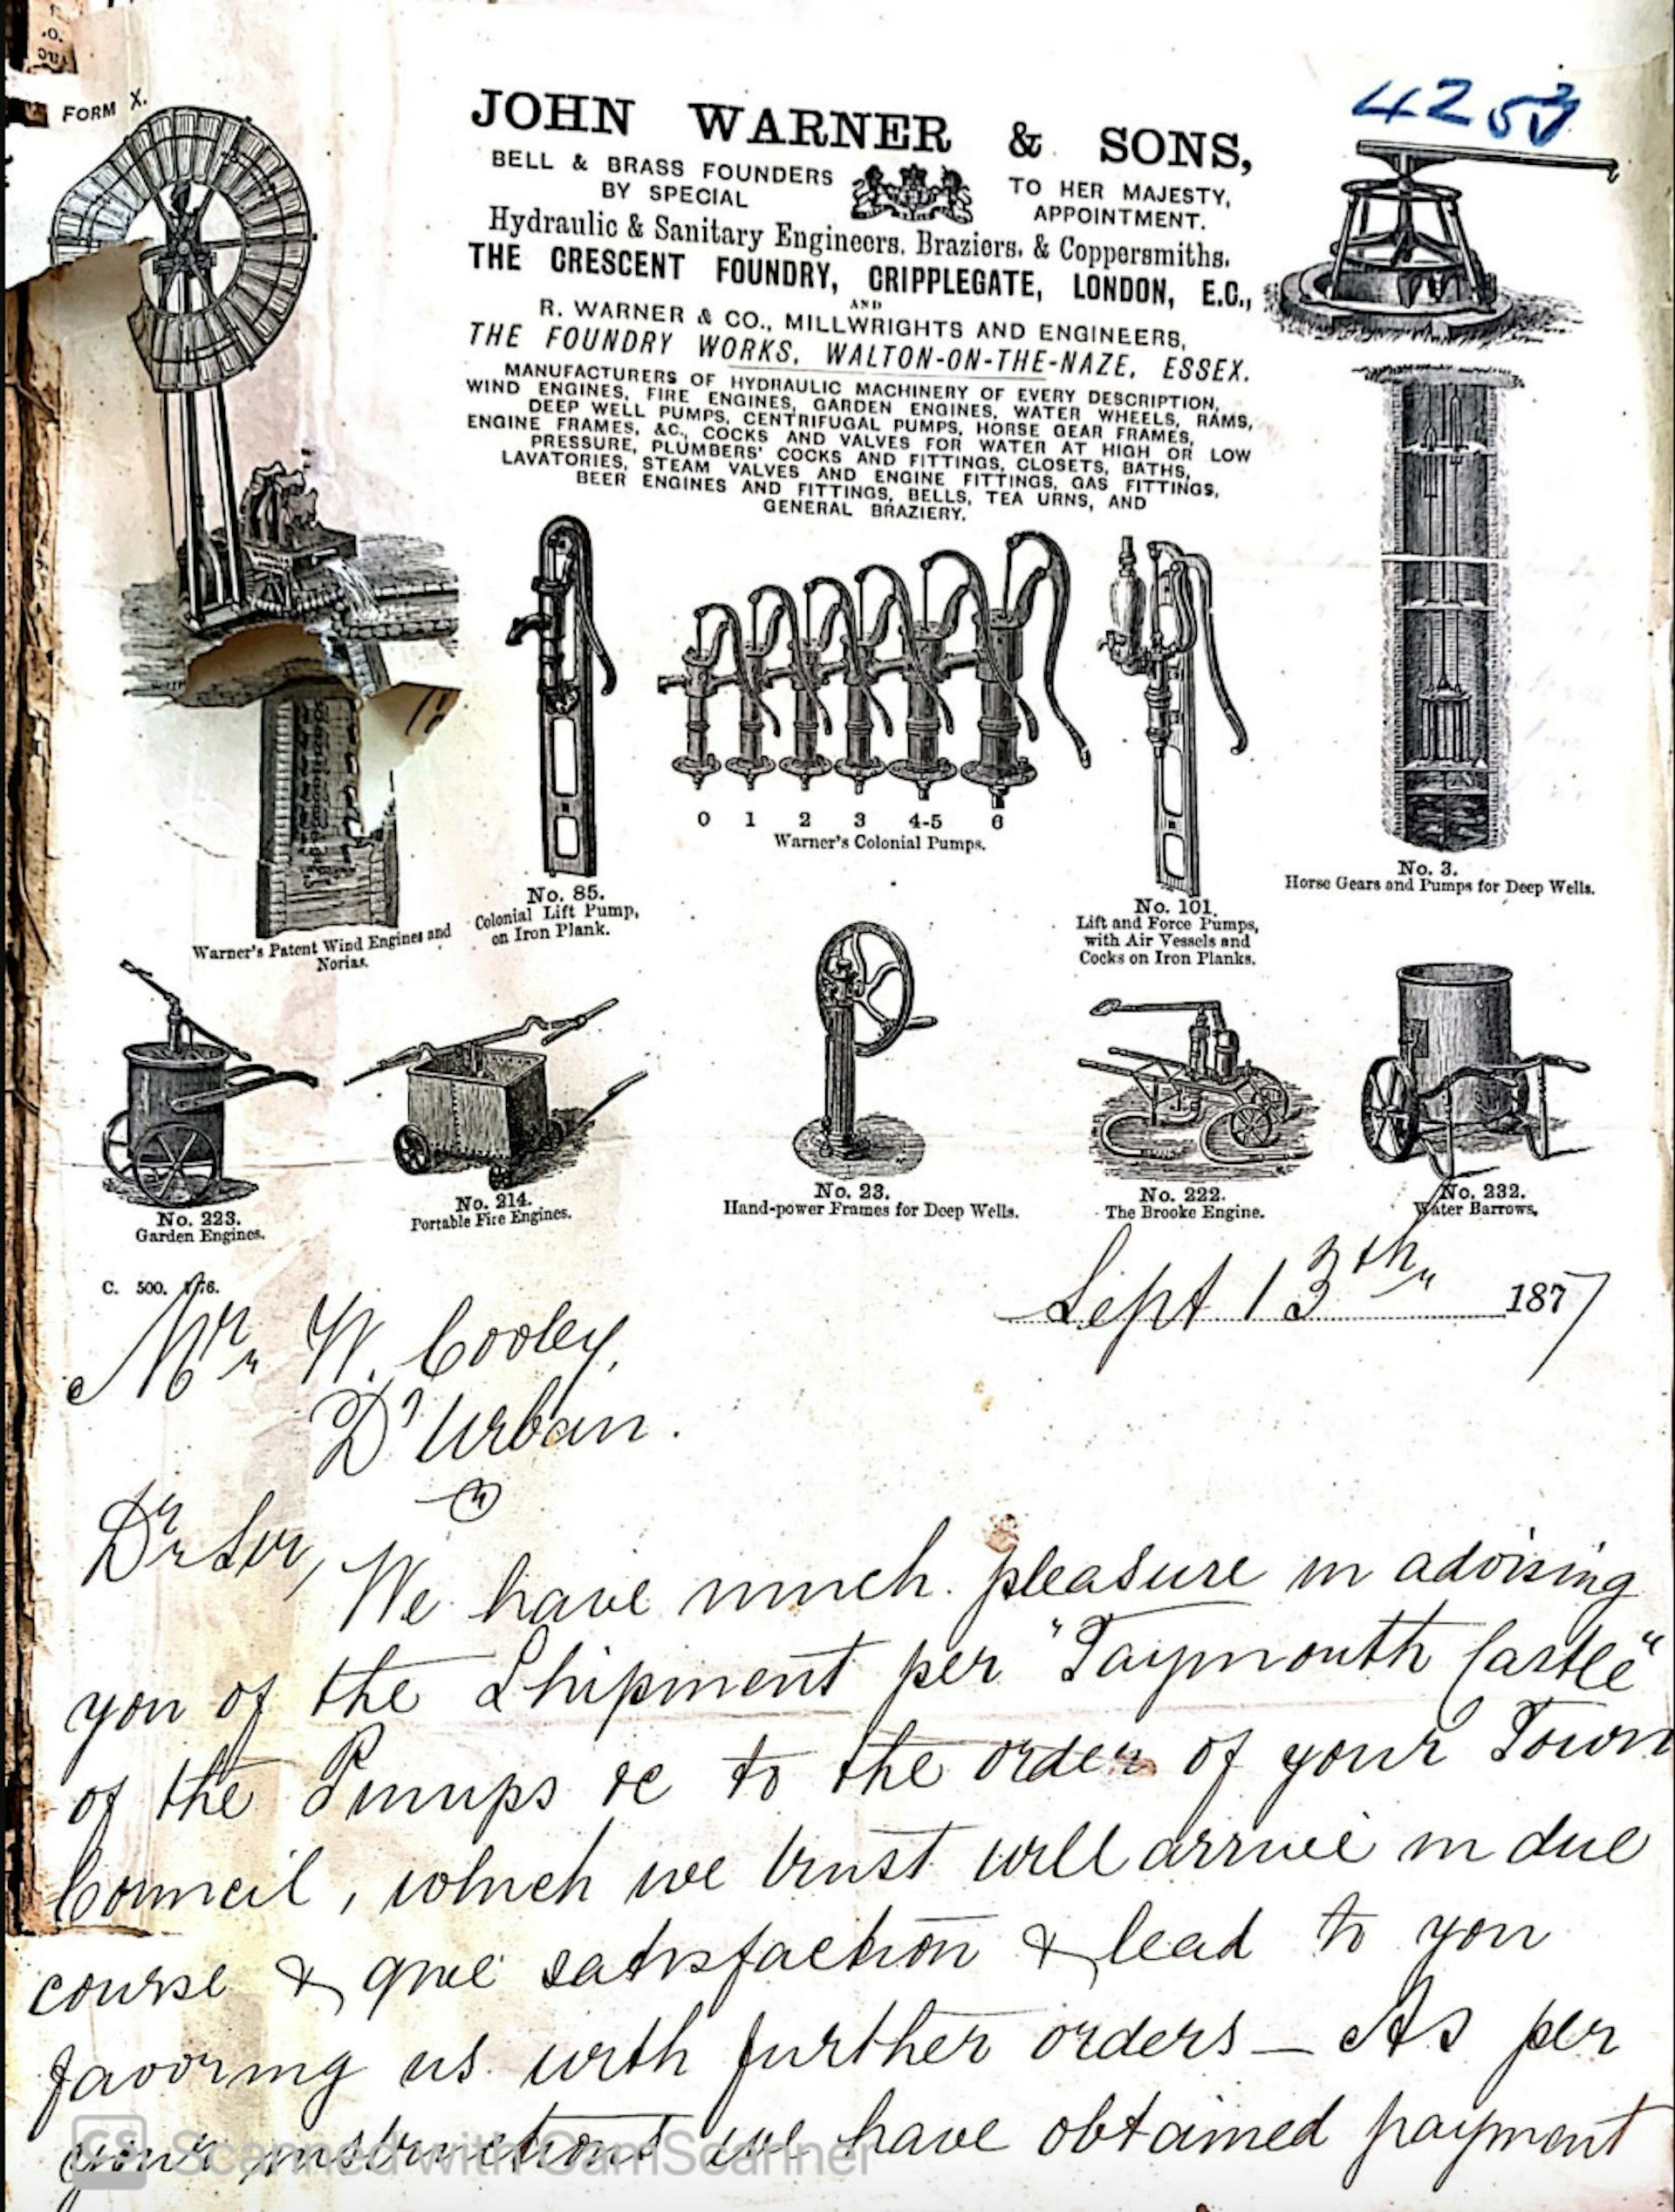 FORM X.
4253
JOHN WARNER & SONS,
BELL & BRASS FOUNDERS TO HER MAJESTY,
BY SPECIAL APPOINTMENT.
Hydraulic & Sanitary Engineers, Braziers, & Coppersmiths,
THE CRESCENT FOUNDRY, CRIPPLEGATE, LONDON, E.C.,
AND
R. WARNER & CO., MILLWRIGHTS AND ENGINEERS,
THE FOUNDRY WORKS, WALTON-ON-THE-NAZE, ESSEX.
MANUFACTURERS OF HYDRAULIC MACHINERY OF EVERY DESCRIPTION,
WIND ENGINES, FIRE ENGINES, GARDEN ENGINES, WATER WHEELS, RAMS,
DEEP WELL PUMPS, CENTRIFUGAL PUMPS, HORSE GEAR FRAMES,
ENGINE FRAMES, &C., COCKS AND VALVES FOR WATER AT HIGH OR LOW
PRESSURE, PLUMBERS' COCKS AND FITTINGS, CLOSETS, BATHS,
LAVATORIES, STEAM VALVES AND ENGINE FITTINGS, GAS FITTINGS,
BEER ENGINES AND FITTINGS, BELLS, TEA URNS, AND
GENERAL BRAZIERY.
0 1 2 3 4-5 6
Warner's Colonial Pumps.
No. 3.
Horse Gears and Pumps for Deep Wells.
No. 85.
Colonial Lift Pump,
on Iron Plank.
No. 101.
Lift and Force Pumps,
with Air Vessels and
Cocks on Iron Planks.
Warner's Patent Wind Engines and
Norias.
No. 223.
Garden Engines.
No. 214.
Portable Fire Engines.
No. 23.
Hand-power Frames for Deep Wells.
No. 222.
The Brooke Engine.
No. 232.
Water Barrows.
C. 500.
Sept 13th 1877
Mr W. Cooley,
D'Urban.
Dr Sir,
We have much pleasure in advising
you of the Shipment per "Taymouth Castle"
of the Pumps &c to the order of your Town
Council, which we trust will arrive in due
course & give satisfaction & lead to you
favoring us with further orders — As per
your instructions we have obtained payment
CS Scanned with CamScanner